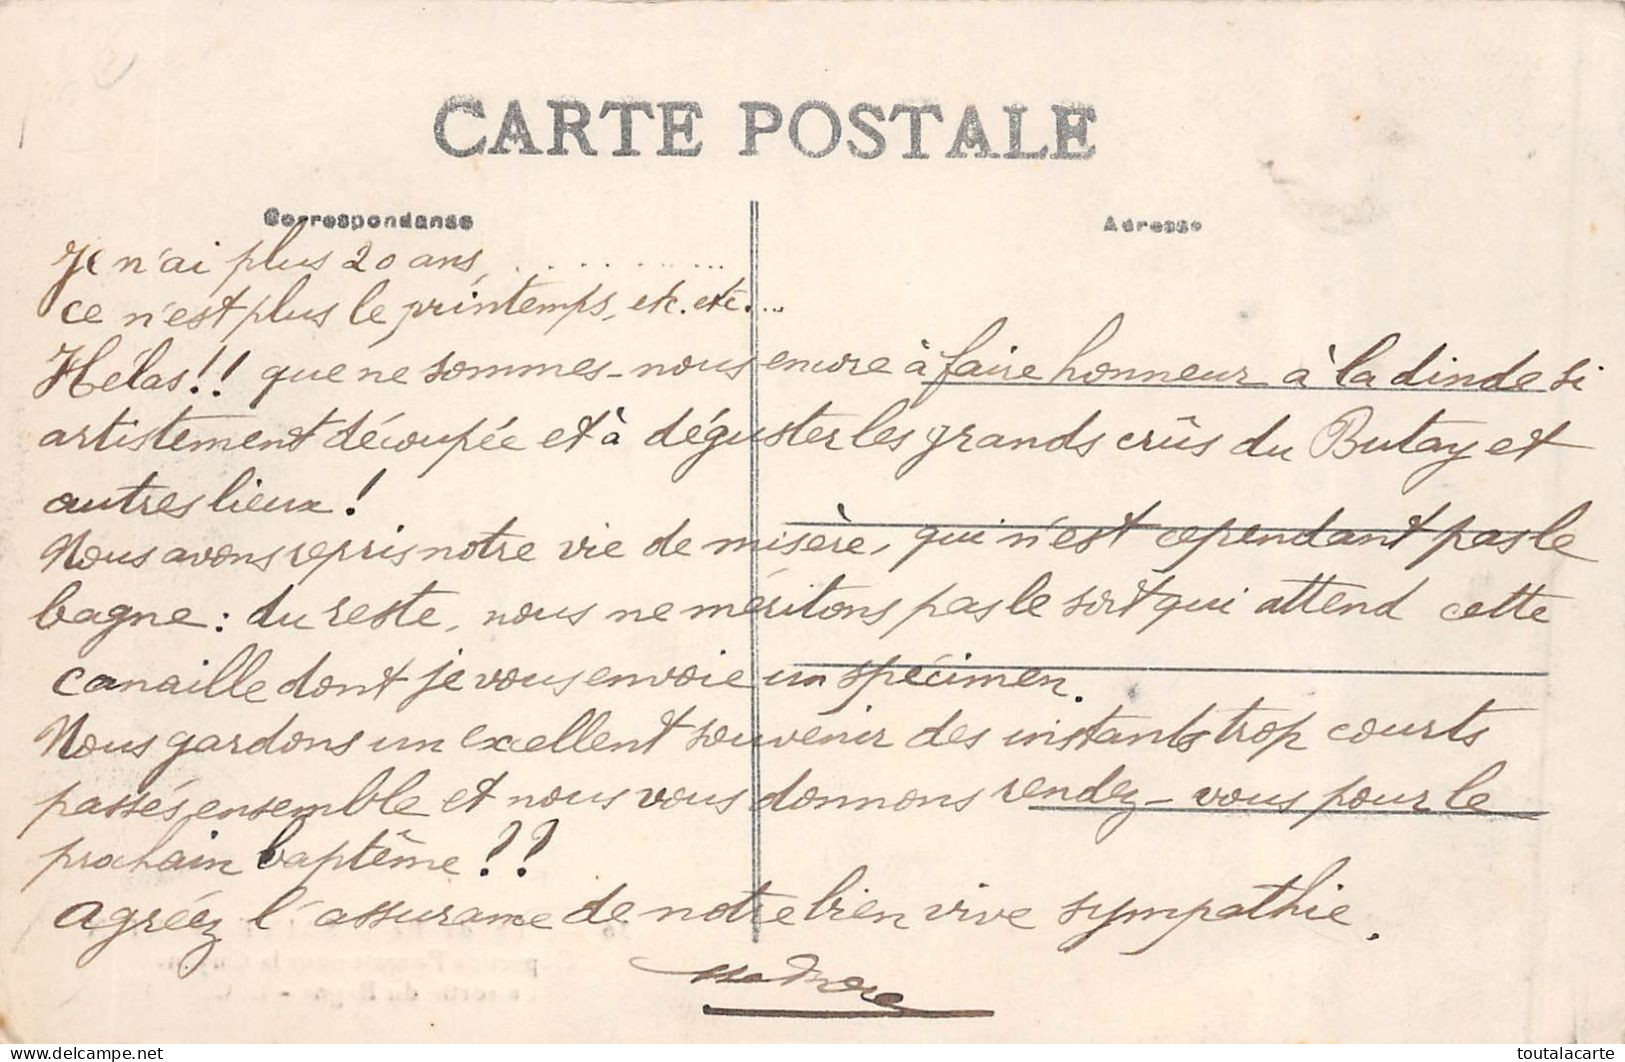 CARTE POSTALE
Correspondance
Adresse
Je n'ai plus 20 ans, . . . . . . . . . .
ce n'est plus le printemps, etc. etc....
Hélas!! que ne sommes-nous encore à faire honneur à la dinde si
artistement découpée et à déguster les grands crûs du Butay et
autres lieux!
Nous avons repris notre vie de misère, qui n'est cependant pas le
bagne: du reste, nous ne méritons pas le sort qui attend cette
canaille dont je vous envoie un spécimen.
Nous gardons un excellent souvenir des instants trop courts
passés ensemble et nous vous donnons rendez-vous pour le
prochain baptême??
Agréez l'assurance de notre bien vive sympathie.
toutalacarte